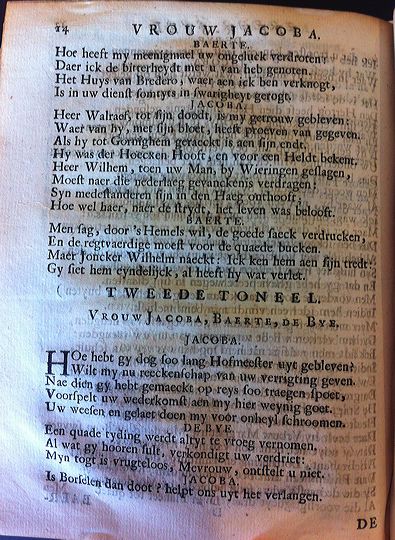 14 VROUW JACOBA.
BAERTE.
Hoe heeft my meenigmael uw ongeluck verdroten!
Daer ick de bitterheydt met u van heb genoten.
Het Huys van Bredero, waer aen ick ben verknogt,
Is in uw dienst somtyts in swarigheyt gerogt.
JACOBA.
Heer Walraef, tot sijn doodt, is my getrouw gebleven:
Waer van hy, met sijn bloet, heeft proeven van gegeven.
Als hy tot Gornighem geraeckt is aen sijn endt.
Hy was der Hoecken Hooft, en voor een Heldt bekent.
Heer Wilhem, toen uw Man, by Wieringen geslagen,
Moest naer die nederlaeg gevanckenis verdragen:
Syn medestanderen sijn in den Haeg onthooft,
Hoe wel haer, naer de strydt, het leven was belooft.
BAERTE.
Men sag, door 's Hemels wil, de goede saeck verdrucken,
En de regtvaerdige moest voor de quaede bucken.
Maer Joncker Wilhelm naeckt: Ick ken hem aen sijn tredt:
Gy siet hem eyndelijck, al heeft hy wat verlet.
TWEEDE TONEEL.
VROUW JACOBA, BAERTE, DE BYE.
JACOBA.
HOe hebt gy dog soo lang Hofmeester uyt gebleven?
Wilt my nu reeckenschap van uw verrigting geven.
Nae dien gy hebt gemaeckt op reys soo traegen spoet,
Voorspelt uw wederkomst aen my hier weynig goet.
Uw weesen en gelaet doen my voor onheyl schroomen.
DE BYE.
Een quade tyding werdt altyt te vroeg vernomen.
Al wat gy hooren sult, verkondigt uw verdriet:
Myn togt is vrugteloos, Mevrouw, ontstelt u niet.
JACOBA.
Is Borselen dan doot? helpt ons uyt het verlangen.
DE